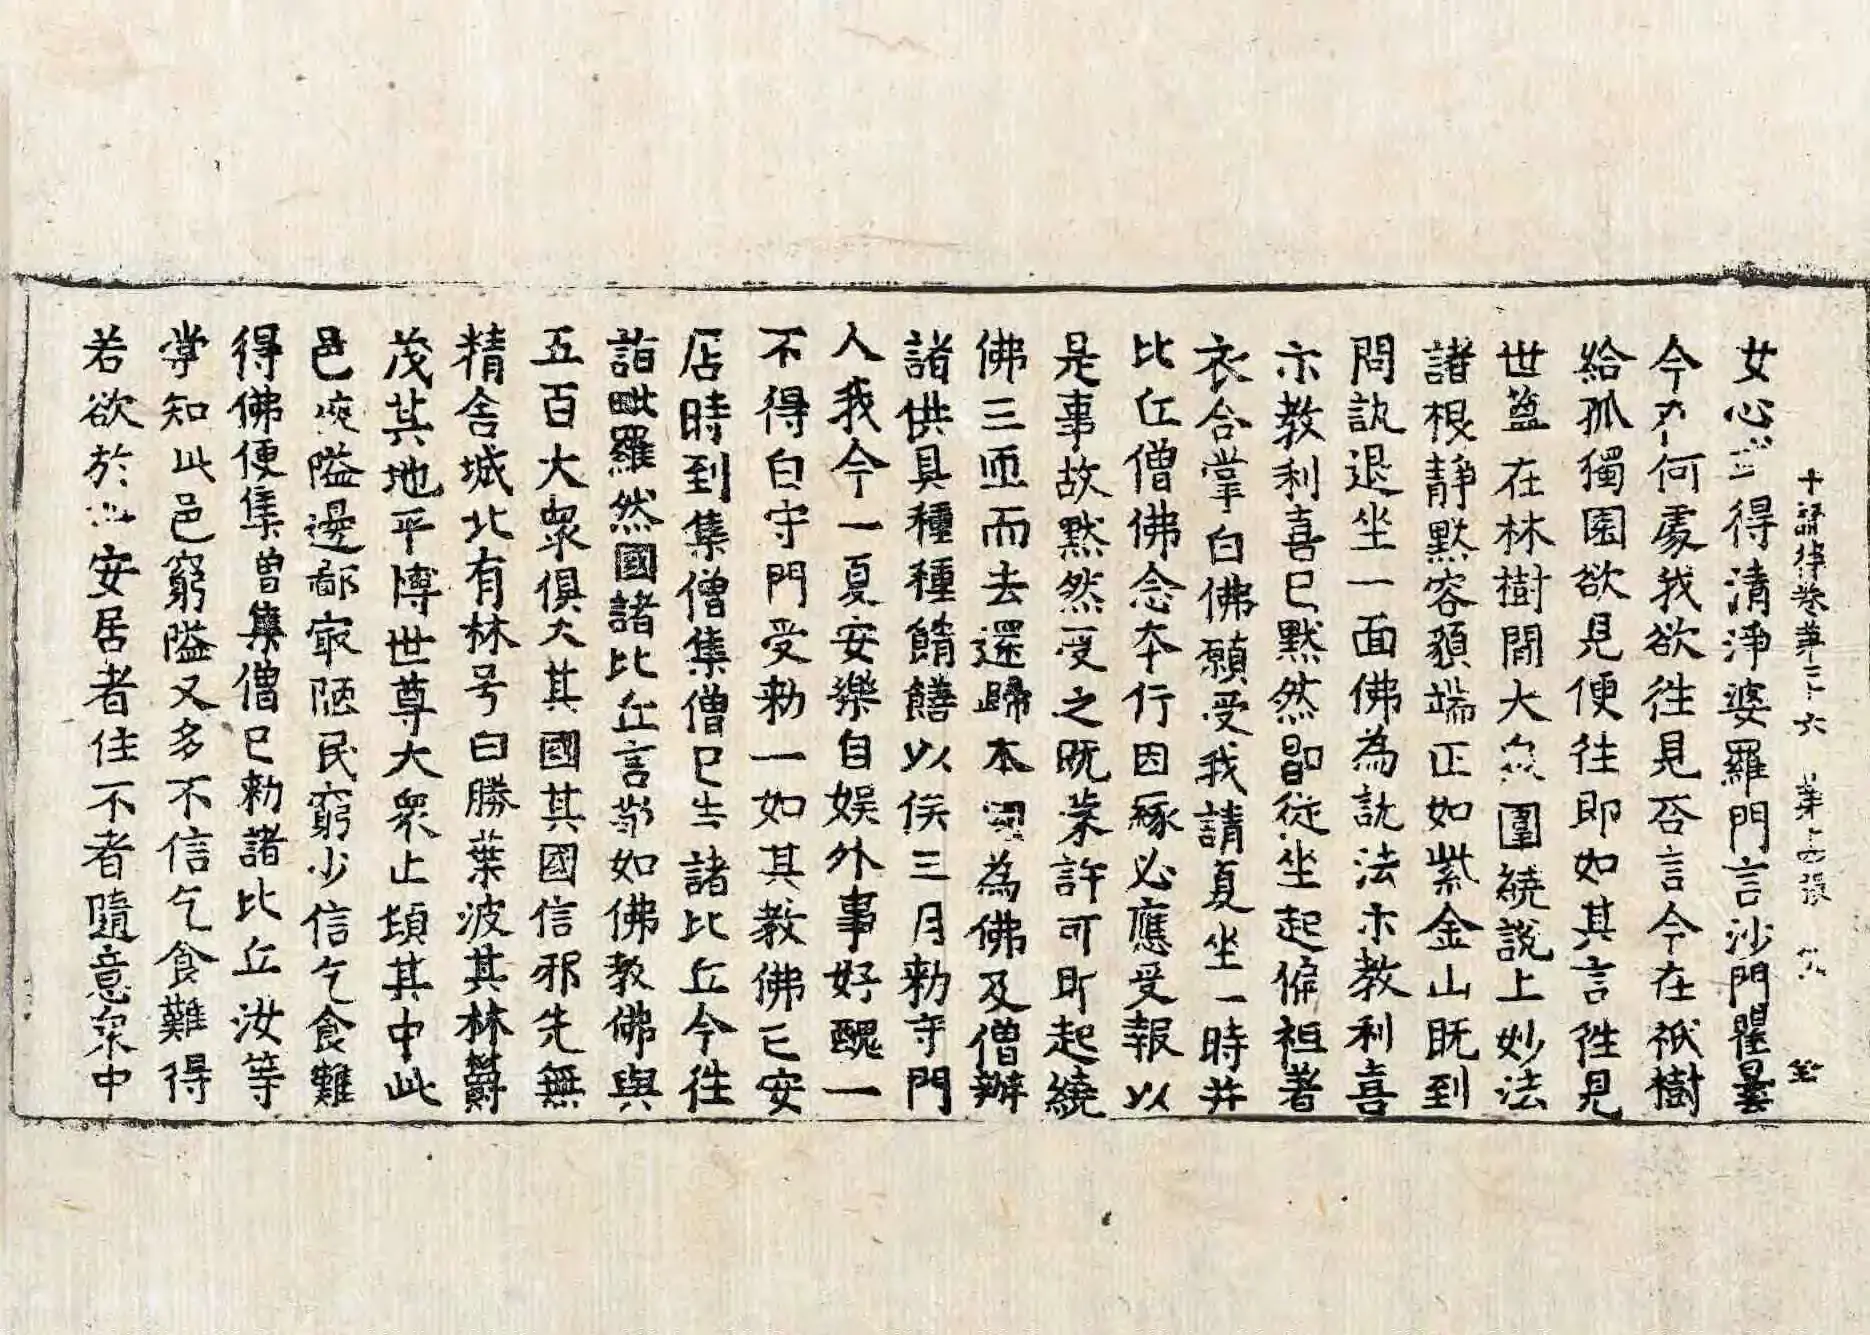 十誦律卷第二十六 第十四張
女心 得清淨婆羅門言沙門瞿曇
今 何處我欲往見否言今在祇樹
給孤獨園欲見便往即如其言往見
世尊在林樹間大衆圍繞說上妙法
諸根靜默容顏端正如紫金山既到
問訊退坐一面佛為說法示教利喜
示教利喜已默然即從坐起偏袒著
衣合掌白佛願受我請夏坐一時并
比丘僧佛念本行因緣必應受報以
是事故默然受之既蒙許可即起繞
佛三匝而去還歸本國為佛及僧辦
諸供具種種餚饍以俟三月勑守門
人我今一夏安樂自娛外事好醜一
不得白守門受勑一如其教佛已安
居時到集僧集僧已告諸比丘今往
詣毗羅然國諸比丘言 如佛教佛與
五百大衆俱大其國其國信邪先無
精舍城北有林号曰勝葉波其林欝
茂其地平博世尊大衆止頓其中此
邑陿隘邊鄙寂陋民窮少信乞食難
得佛便集曽集僧已勑諸比丘汝等
當知此邑窮隘又多不信乞食難得
若欲於此安居者住不者隨意衆中